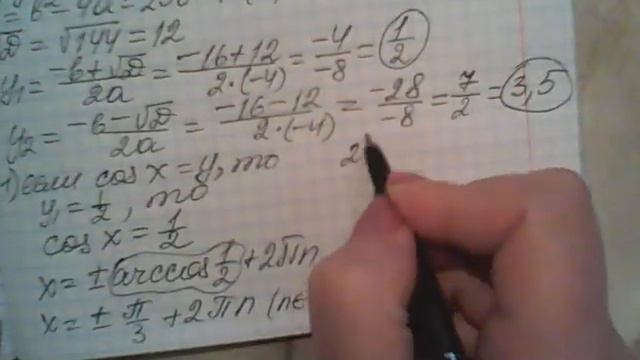 √D = √144 = 12
y₁ = (-b+√D)/2a = (-16+12)/(2·(-4)) = -4/-8 = 1/2
y₂ = (-b-√D)/2a = (-16-12)/(2·(-4)) = -28/-8 = 7/2 = 3,5
1) если cos x = y, то
2
y₁ = 1/2, то
cos x = 1/2
x = ± arccos 1/2 + 2πn
x = ± π/3 + 2πn (n∈